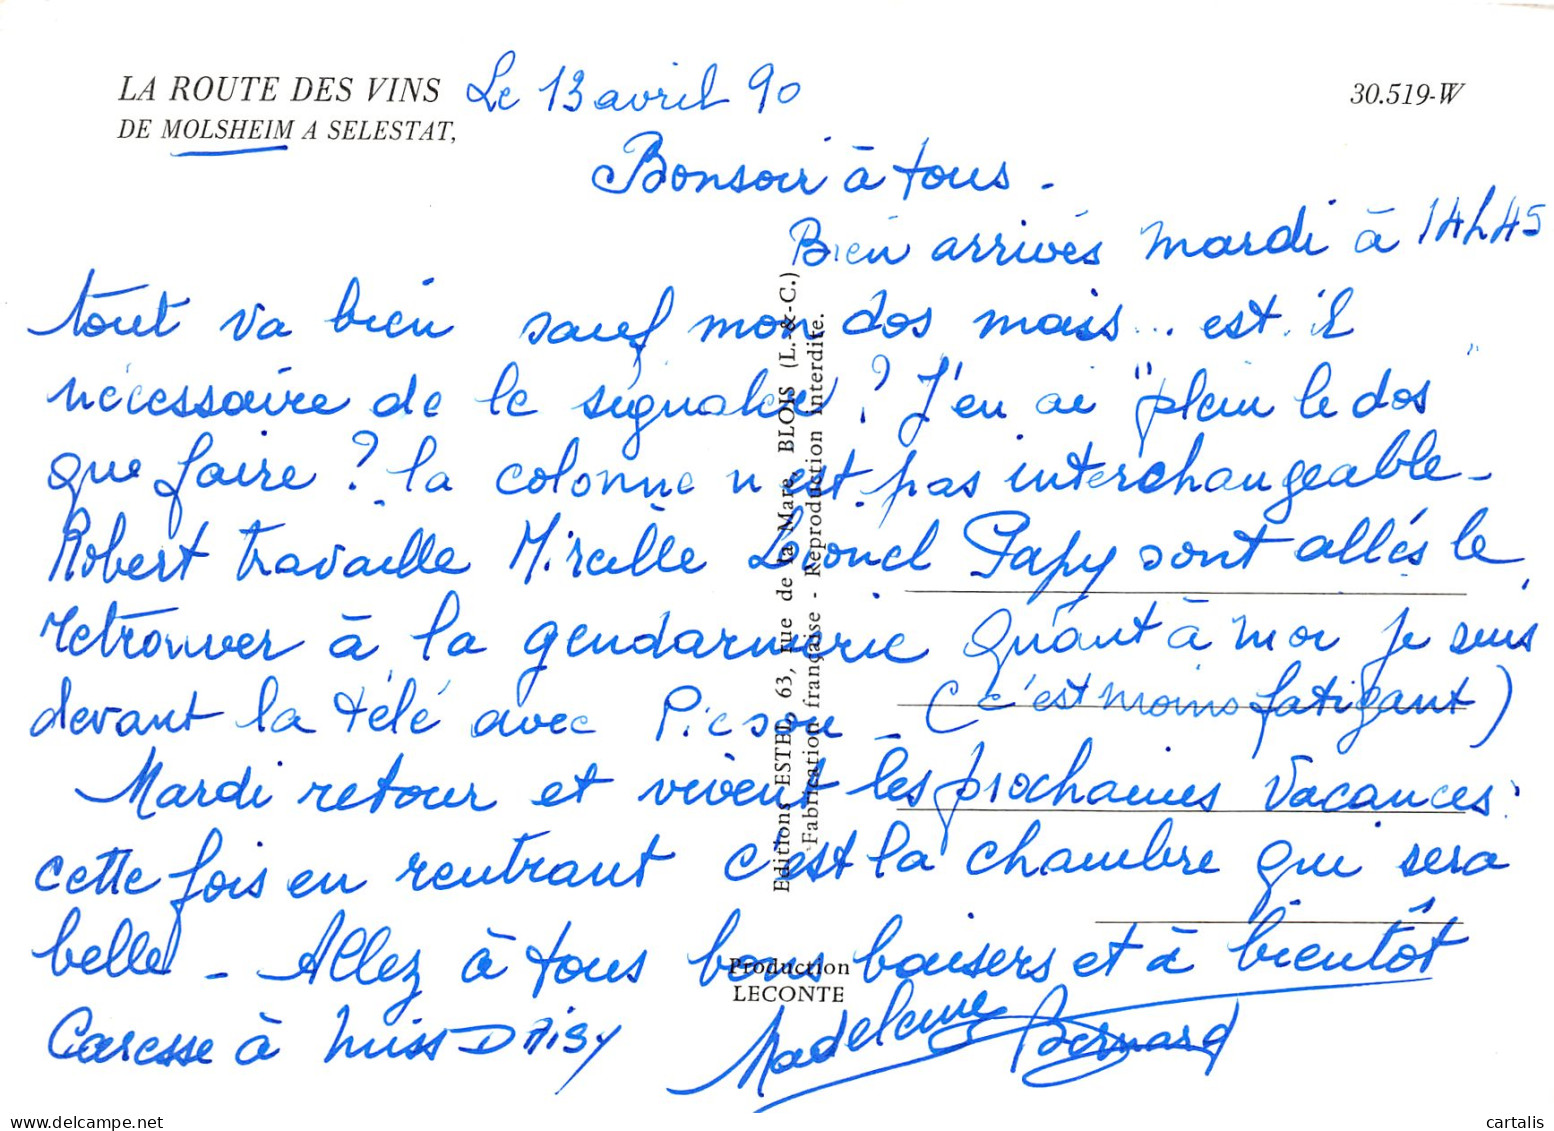 LA ROUTE DES VINS Le 13 avril 90 30.519-W
DE MOLSHEIM A SELESTAT,
Bonsoir à tous -
Bien arrivés mardi à 14h45
tout va bien sauf mon dos mais... est il
nécessaire de le signaler ? J'en ai "plein le dos"
que faire ? la colonne n'est pas interchangeable -
Robert travaille Mireille Lionel Papy sont allés le
retrouver à la gendarmerie Quant à moi je suis
devant la télé avec Picsou - (c'est moins fatigant)
Mardi retour et vivent les prochaines vacances :
cette fois en rentrant c'est la chambre qui sera
belle - Allez à tous bons baisers et à bientôt
Caresse à miss DAISY Madeleine Bernard
Editions ESTEL, 63, rue de la Mare, BLOIS (L.-&-C.)
Fabrication française - Reproduction interdite.
Production
LECONTE
delcampe.net
cartalis